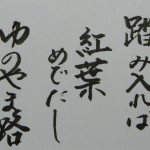 踏み入れば
紅葉
めでたし
ゆのやま路